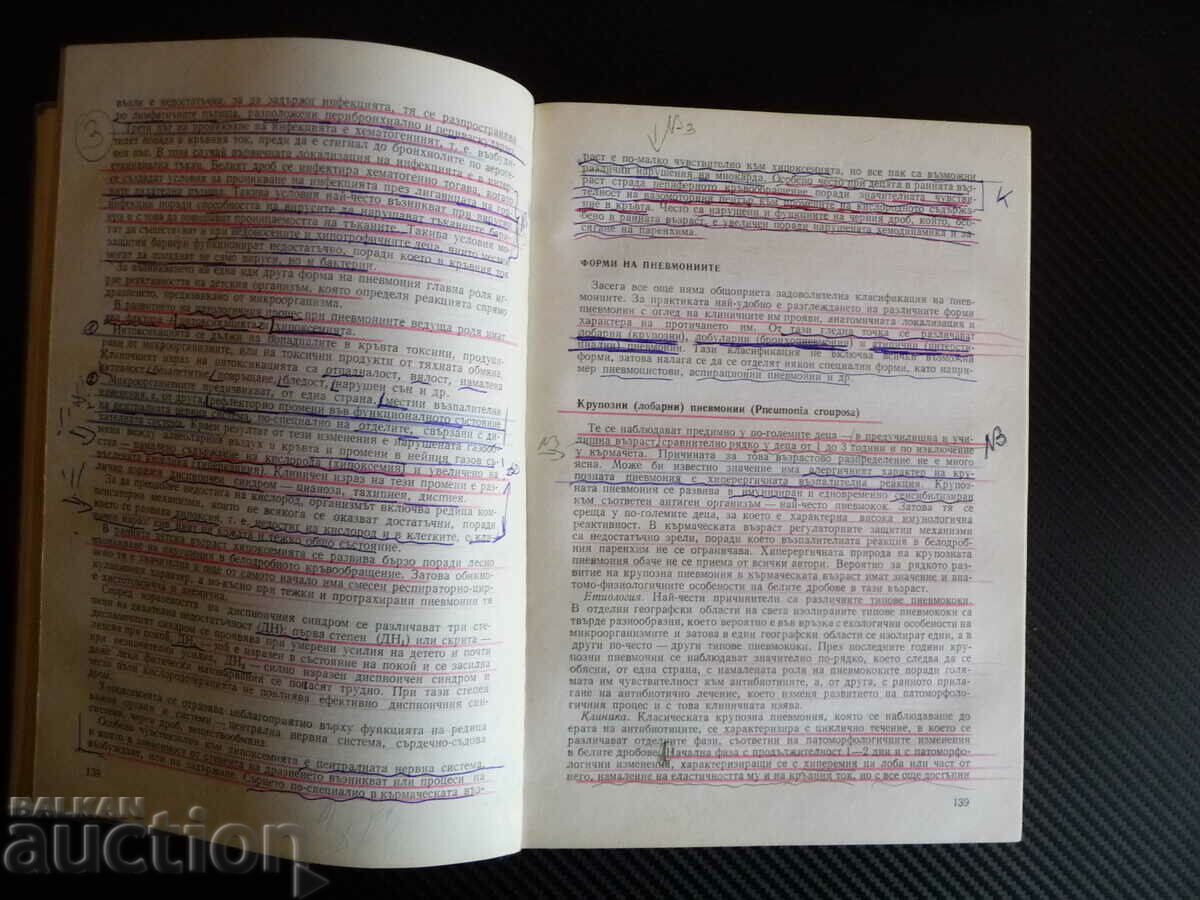 3
възли е недостатъчна, за да задържи инфекцията, тя се разпространява
по лимфатичните пътища, разположени перибронхиално и периваскуларно.
Трети път за проникване на инфекцията е хематогенният, т. е. възбуди-
телят попада в кръвния ток, преди да е стигнал до бронхиолите по аероген-
ен път. В този случай първичната локализация на инфекцията е в интер-
стициалната тъкан. Белият дроб се инфектира хематогенно тогава, когато
се създадат условия за проникване на инфекцията през лигавицата на гор-
ните дихателни пътища. Такива условия най-често възникват при вирусни
инфекции поради способността на вирусите да нарушават тъканните бари-
ери и с това да повишават проницаемостта на тъканите. Такива условия мо-
гат да съществуват и при недоносените и хипотрофичните деца, чиито местни
защитни бариери функционират недостатъчно, поради което в кръвния ток
могат да попаднат не само вируси, но и бактерии.
За възникването на една или друга форма на пневмония главна роля иг-
рае реактивността на детския организъм, която определя реакцията спрямо
дразненето, предизвикано от микроорганизма.
В развитието на патологичния процес при пневмониите ведуща роля имат
два фактора: интоксикацията и хипоксемията.
Интоксикацията се дължи на попадналите в кръвта токсини, продуци-
рани от микроорганизмите, или на токсични продукти от тяхната обмяна.
Клиничният израз на интоксикацията са отпадналост, вялост, намалена
активност, безапетитие, повръщане, бледост, нарушен сън и др.
Микроорганизмите предизвикват, от една страна, местни възпалителни
изменения, а от друга, рефлекторно промени във функционалното състояние
на централната нервна система, по-специално на отделите, свързани с ди-
хателната система. Краен резултат от тези изменения е нарушената газооб-
мяна между алвеоларния въздух и кръвта и промени в нейния газов със-
тав — намалено съдържание на кислорода (хипоксемия) и увеличено на
въглениця (хиперкапния). Клиничен израз на тези промени е раз-
лично изразен диспноичен синдром — цианоза, тахипнея, диспнея.
За да преодолее недостига на кислород, организмът включва редица ком-
пенсаторни механизми, които не всякога се оказват достатъчни, поради
което се развива хипоксия, т. е. недостиг на кислород и в клетките, с кли-
ничен израз сив цвят на кожата и тежко общо състояние.
В ранната детска възраст хипоксемията се развива бързо поради лесно
възникване на нарушения в белодробното кръвообращение. Затова обикно-
вено тя е значителна и още от самото начало има смесен респираторно-цир-
кулаторен характер, а по-късно при тежки и протрахирани пневмонии тя
е хистотоксична и анемична.
Според изразеността на диспноичния синдром се различават три сте-
пени на дихателна недостатъчност (ДН): първа степен (ДН₁) или скрита —
диспноичният синдром се проявява при умерени усилия на детето и почти
липсва при покой, ДН₂ — той е изразен в състояние на покой и се засилва
при незначителни усилия, ДН₃ — силно изразен диспноичен синдром и
при покой, дори леки физически натоварвания се понасят трудно. При тази степен
често пъти кислородотерапията не повлиява ефективно диспноичния син-
дром.
Хипоксемията се отразява неблагоприятно върху функцията на редица
важни органи и системи — централна нервна система, сърдечно-съдова
система, черен дроб, веществообмяна.
Особено чувствителна към хипоксемията е централната нервна система,
в която в зависимост от степента на дразненето възникват или процеси на
възбуждане, или на задържане. Сърцето по-специално в кърмаческата въз-
138
N3
раст е по-малко чувствително към хипоксемията, но все пак са възможни
различни нарушения на миокарда. Особено място при децата в ранната въз-
раст страда периферното кръвообращение поради значителната чувстви-
телност на вазомоторния център към промените в кислородното съдържа-
ние в кръвта. Често са нарушени и функциите на черния дроб, който, осо-
бено в ранната възраст, е увеличен поради нарушената хемодинамика и за-
сягане на паренхима.
К
ФОРМИ НА ПНЕВМОНИИТЕ
Засега все още няма общоприета задоволителна класификация на пнев-
мониите. За практиката най-удобно е разглеждането на различните форми
пневмонии с оглед на клиничните им прояви, анатомичната локализация и
характера на протичането им. От тази гледна точка се различават
лобарни (крупозни), лобуларни (бронхопневмонии) и атипични (интерсти-
циални) пневмонии. Тази класификация не включва всички възможни
форми, затова налага се да се отделят някои специални форми, като напри-
мер пневмоцистови, аспирационни пневмонии и др.
Крупозни (лобарни) пневмонии (Pneumonia crouposa)
Те се наблюдават предимно у по-големите деца — в предучилищна и учи-
лищна възраст, сравнително рядко у деца от 1 до 3 години и по изключение
у кърмачета. Причината за това възрастово разпределение не е много
ясна. Може би известно значение има алергичният характер на кру-
позната пневмония с хиперергичната възпалителна реакция. Крупоз-
ната пневмония се развива в имунизиран и едновременно сенсибилизиран
към съответен антиген организъм — най-често пневмокок. Затова тя се
среща у по-големите деца, за което е характерна висока имунологична
реактивност. В кърмаческата възраст регулаторните защитни механизми
са недостатъчно зрели, поради което възпалителната реакция в белодроб-
ния паренхим не се ограничава. Хиперергичната природа на крупозната
пневмония обаче не се приема от всички автори. Вероятно за рядкото раз-
витие на крупозна пневмония в кърмаческата възраст имат значение и ана-
томо-физиологичните особености на белите дробове в тази възраст.
N3
N3
Етиология. Най-чести причинители са различните типове пневмококи.
В отделни географски области на света изолираните типове пневмококи са
твърде разнообразни, което вероятно е във връзка с екологични особености на
микроорганизмите и затова в едни географски области се изолират едни, а в
други по-често — други типове пневмококи. През последните години кру-
позни пневмонии се наблюдават значително по-рядко, което следва да се
обясни, от една страна, с намалената роля на пневмококите поради голя-
мата им чувствителност към антибиотиците, а, от друга, с ранното прилага-
не на антибиотично лечение, което изменя развитието на патоморфоло-
гичния процес и с това клиничната изява.
Клиника. Класическата крупозна пневмония, която се наблюдаваше до
ерата на антибиотиците, се характеризира с циклично течение, в което се
различават отделните фази, съответни на патоморфологичните изменения
в белите дробове. Начална фаза с продължителност 1—2 дни и с патоморфо-
логични изменения, характеризиращи се с хиперемия на лоба или част от
него, намаление на еластичността му и на кръвния ток, но с все още достъпни
139
BALKAN
auction